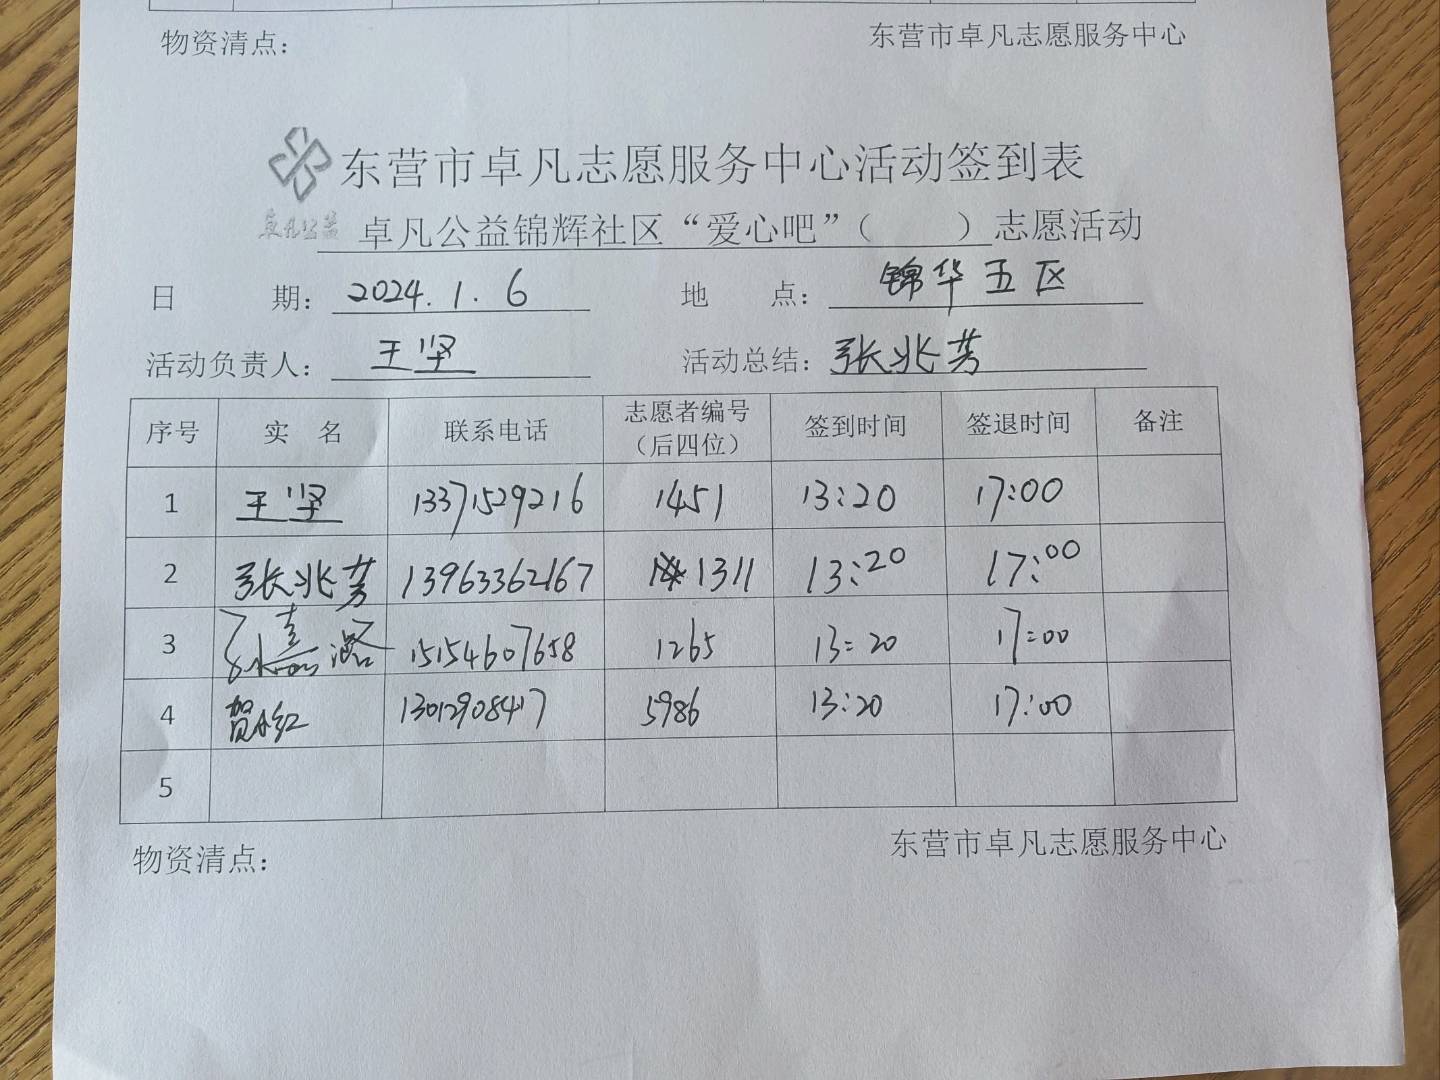 物资清点： 东营市卓凡志愿服务中心
东营市卓凡志愿服务中心活动签到表
卓凡公益
卓凡公益锦辉社区“爱心吧”（ ）志愿活动
日 期： 2024.1.6 地 点： 锦华五区
活动负责人： 王坚 活动总结： 张兆芳
序号 实 名 联系电话 志愿者编号（后四位） 签到时间 签退时间 备注
1 王坚 13371529216 1451 13:20 17:00
2 张兆芳 13963362167 1311 13:20 17:00
3 15154607658 1265 13:20 17:00
4 13012908417 5986 13:20 17:00
5
物资清点： 东营市卓凡志愿服务中心